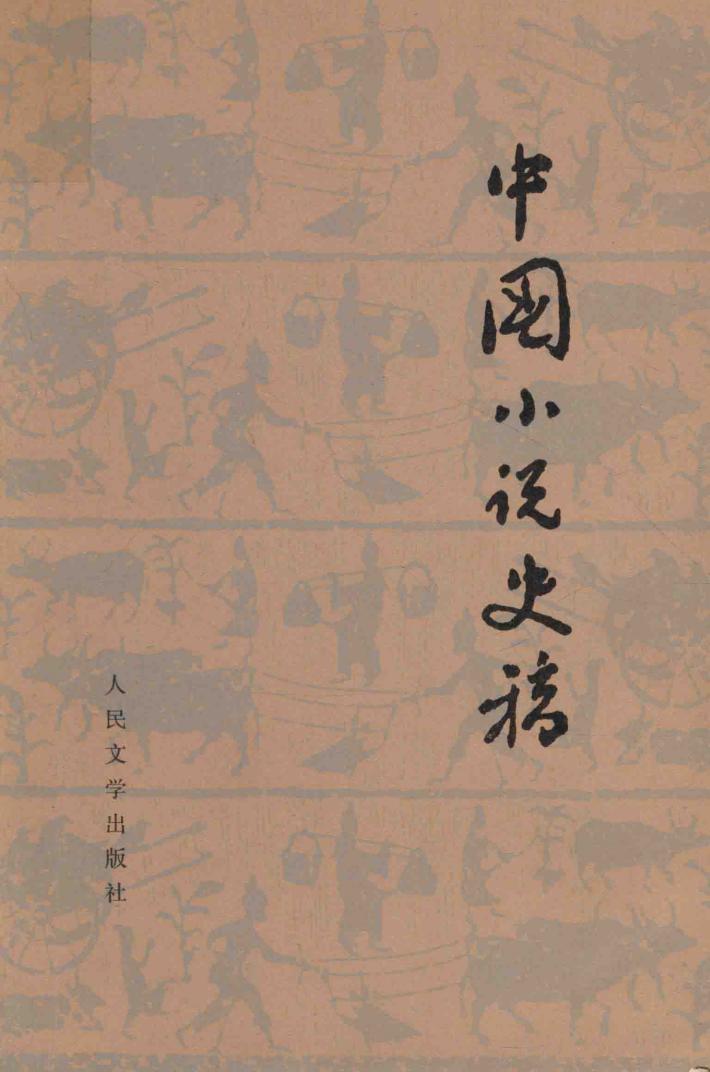 中国小说史稿
人民文学出版社